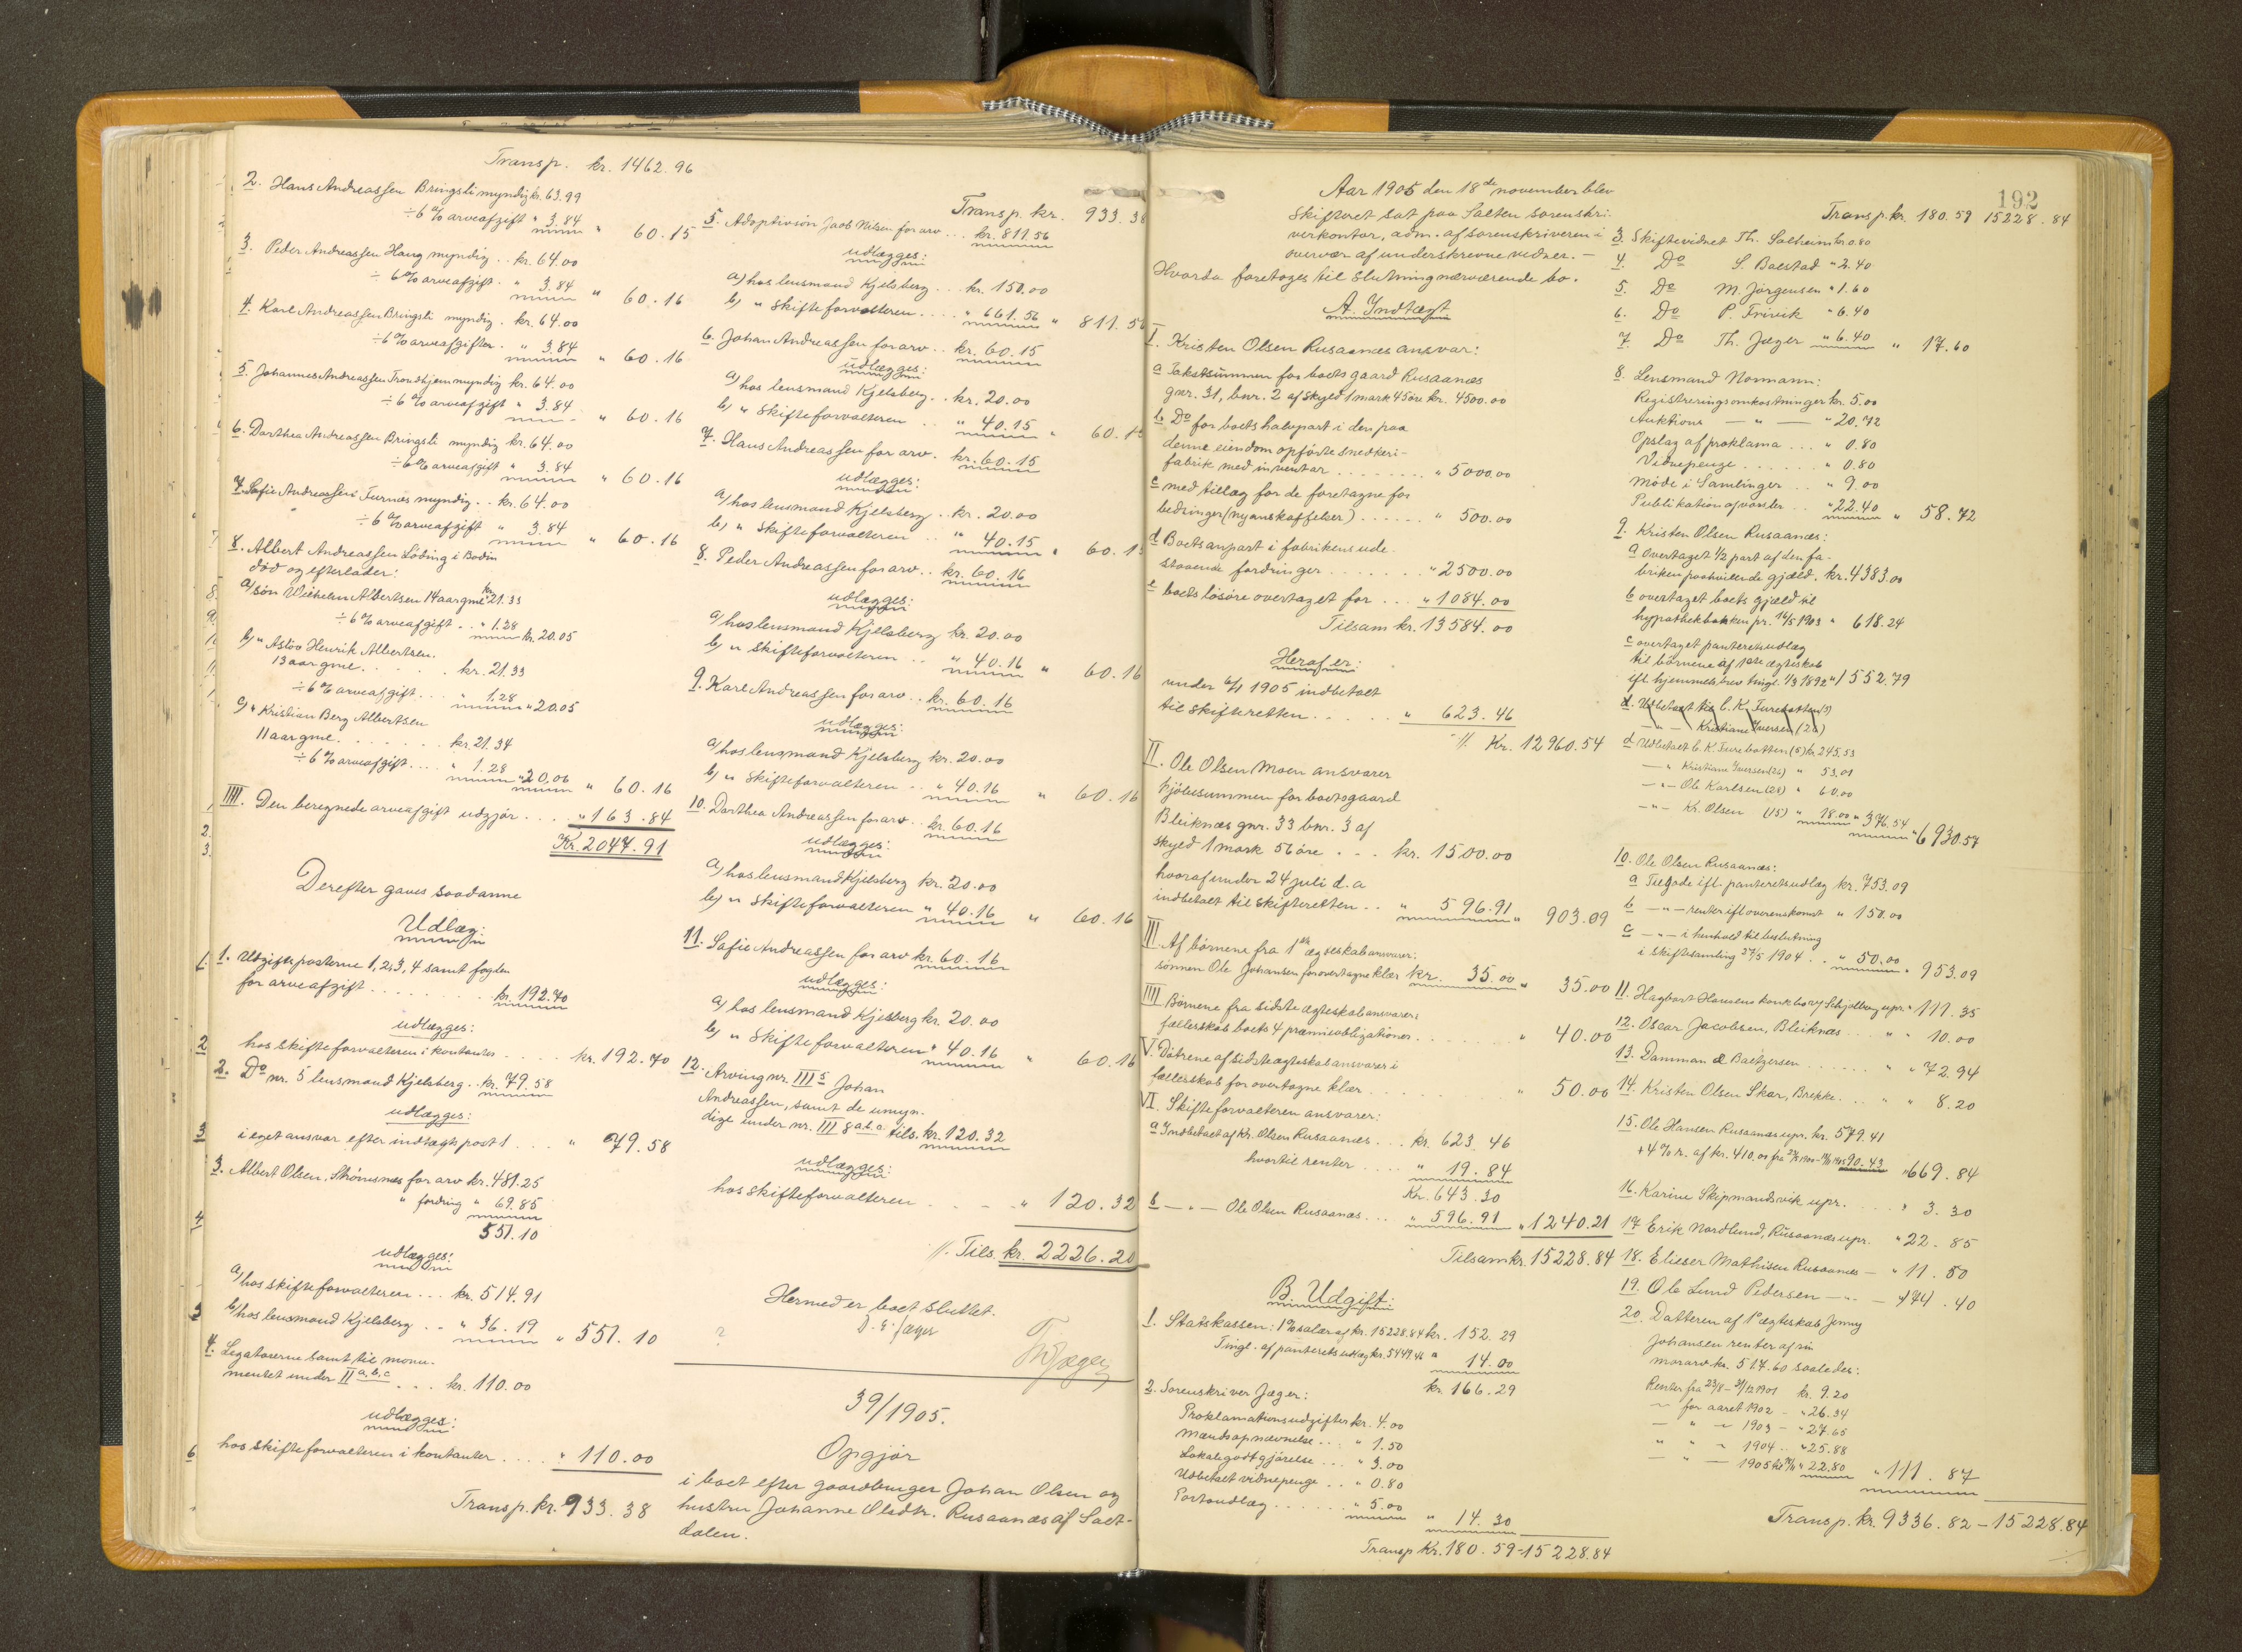 Transp. kr. 1462.96
2. Hans Andreassen Bringsli myndig kr. 63.99
÷ 6 % arveafgift " 3.84 " 60.15
3. Peder Andreassen Haug myndig .. kr. 64.00
÷ 6 % arveafgift . " 3.84 " 60.16
4. Karl Andreassen Bringsli myndig . kr. 64.00
÷ 6 % arveafgifter . " 3.84 " 60.16
5. Johannes Andreassen Trondhjem myndig kr. 64.00
÷ 6 % arveafgift " 3.84 " 60.16
6. Dorthea Andreassen Bringsli myndig kr. 64.00
÷ 6 % arveafgift " 3.84 " 60.16
7. Safie Andreassen Furnes myndig .. kr. 64.00
÷ 6 % arveafgift " 3.84 " 60.16
8. Albert Andreassen Löding i Bodin
död og efterlader:
a) sön Wilhelm Albertsen 14 aar gml. kr. 21.33
÷ 6 % arveafgift .. " 1.28 kr. 20.05
b) " Aslöv Henrik Albertsen.
13 aar gml. . . . . kr. 21.33
÷ 6 % arveafgift . . . " 1.28 " 20.05
c) " Kristian Berg Albertsen
11 aar gml. . . . . . . kr. 21.34
÷ 6 % arveafgift . . . . " 1.28 " 20.06 " 60.16
IIII. Den beregnede arveafgift udgjör . . . . " 163.84
Kr. 2047.91
Derefter gaves saadanne
Udlæg:
1. Udgiftsposterne 1, 2, 3, 4 samt fogden
for arveafgift . . . . . . . kr. 192.70
udlægges:
hos skifteforvalteren i kontanter . . . . kr. 192.70
2. Do nr. 5 lensmand Kjelsberg .. kr. 79.58
udlægges:
i eget ansvar efter indtægtspost 1 . . . " 79.58
3. Albert Olsen, Strömsnes for arv kr. 481.25
" fordring " 69.85
551.10
udlægges:
a) hos skifteforvalteren . . . kr. 514.91
b) hos lensmand Kjelsberg . . " 36.19 " 551.10
4. Legatarerne samt til monu-
mentet under II a, b, c . . . kr. 110.00
udlægges:
hos skifteforvalteren i kontanter . . . . " 110.00
Transp. kr. 933.38
Transp. kr. 933.38
5. Adoptivsön Jacob Nilsen for arv . . . kr. 811.56
udlægges:
a) hos lensmand Kjelsberg . . . kr. 150.00
b) " skifteforvalteren . . . . " 661.56 " 811.56
6. Johan Andreassen for arv . . kr. 60.15
udlægges:
a) hos lensmand Kjelsberg . . kr. 20.00
b) " skifteforvalteren . . " 40.15 " 60.15
7. Hans Andreassen for arv . kr. 60.15
udlægges:
a) hos lensmand Kjelsberg . . kr. 20.00
b) " skifteforvalteren . . " 40.15 " 60.15
8. Peder Andreassen for arv . . kr. 60.16
udlægges:
a) hos lensmand Kjelsberg kr. 20.00
b) " skifteforvalteren . . " 40.16 " 60.16
9. Karl Andreassen for arv . . kr. 60.16
udlægges:
a) hos lensmand Kjelsberg kr. 20.00
b) " skifteforvalteren . . " 40.16 " 60.16
10. Dorthea Andreassen for arv . . kr. 60.16
udlægges:
a) hos lensmand Kjelsberg kr. 20.00
b) " skifteforvalteren " 40.16 " 60.16
11. Safie Andreassen for arv kr. 60.16
udlægges:
a) hos lensmand Kjelsberg kr. 20.00
b) " skifteforvalteren " 40.16 " 60.16
12. Arving nr. III 5 Johan
Andreassen, samt de umyn-
dige under nr. III 8 a.b.c. tils. kr. 120.32
udlægges:
hos skifteforvalteren . . - . " 120.32
//. Tils. kr. 2226.20
Hermed er boet sluttet.
D. E. Jæger
Th. Jæger
39/1905.
Opgjör
i boet efter gaardbruger Johan Olsen og
hustru Johanne Olsdtr. Rusaanes af Salt-
dalen.
192
Aar 1905 den 18de november blev
skifteret sat paa Salten sorenskri-
verkontor, adm. af sorenskriveren i
overvær af underskrevne vidner. -
Hvorda foretoges til slutning nærværende bo.
A. Indtægt
I. Kristen Olsen Rusaanes ansvar:
a Takstsummen for boets gaard Rusaanes
gnr. 31, bnr. 2 af skyld 1 mark 45 öre kr. 4500.00
b Do for boets halvpart i den paa
denne eiendom opförte snedkeri-
fabrik med inventar . . . . . . . " 5000.00
c med tillæg for de foretagne for
bedringer (nyanskaffelser) . . . . . . " 500.00
d Boets anpart i fabrikens ude-
staaende fordringer . . . . . . . " 2500.00
e boets lösöre overtaget for . . . " 1084.00
Tilsam kr. 13584.00
Heraf er:
under 6/1 1905 indbetalt
til skifteretten . . . . . " 623.46
//. Kr. 12960.54
II. Ole Olsen Moen ansvarer
Kjöbesummen for boets gaard
Bleiknæs gnr. 33 bnr. 3 af
skyld 1 mark 56 öre . . . kr. 1500.00
hvoraf under 24 juli d. a
indbetalt til skifteretten . . " 596.91 " 903.09
III. Af börnene fra 1ste ægteskab ansvarer:
sönnen Ole Johansen for overtagne klær kr. 35.00 " 35.00
IIII Börnene fra sidste ægteskab ansvarer i
fællesskab boets 4 præmieobligationer . . . . . " 40.00
V. Döttrene af sidste ægteskab ansvarer i
fællesskab for overtagne klær . . . . . . . " 50.00
VI. Skifteforvalteren ansvarer:
a Indbetalt af Kr. Olsen Rusaanæs . . . kr. 623.46
hvortil renter . . . . " 19.84
Kr. 643.30
b — " — Ole Olsen Rusaanæs . . . " 596.91 " 1240.21
Tilsam kr. 15228.84
B. Udgift:
1. Statskassen: 1 % salær af kr. 15228.84 kr. 152.29
Tingl. af panteretsudlæg kr. 5449.46 " 14.00
kr. 166.29
2. Sorenskriver Jæger:
Proklamationsudgifter kr. 4.00
Mandsopnævnelse . . . " 1.50
Lokalegodtgjörelse . . . " 3.00
Udbetalt vidnepenge . . " 0.80
Portoudlæg . . . . . . " 5.00 " 14.30
Transp Kr. 180.59 - 15228.84
Transp. kr. 180.59 15228.84
3. Skiftevidnet Th. Solheim kr. 0.80
4. Do S. Bolstad " 2.40
5. Do M. Jörgensen " 1.60
6. Do P. Frivik " 6.40
7. Do Th. Jæger " 6.40 " 17.60
8. Lensmand Normann:
Registreringsomkostninger kr. 5.00
Auktions — " — " 20.72
Opslag af proklama . . . " 0.80
Vidnepenge . . . . . . " 0.80
Möde i Samlinger . . " 9.00
Publikation af varsler . . " 22.40 " 58.72
9. Kristen Olsen Rusaanæs:
a Overtaget 1/2 part af den fa-
briken paahvilende gjæld. kr. 4383.00
b overtaget boets gjæld til
hypothekbanken pr. 14/5 1903 " 618.24
c overtaget panteretsudlæg
til börnene af 1ste ægteskab
ifl. hjemmelsbrev tingl. 1/3 1892 " 1552.79
d. Udbetalt til C. K. Furebotten (5)
— " — Kristiane Iversen (26)
d Udbetalt C. K. Furebotten (5) kr. 245.53
— " Kristiane Iversen (26) " 53.01
— " — Ole Karlsen (28) " 60.00
— " — Kr. Olsen (15) " 18.00 " 376.54 " 6930.57
10. Ole Olsen Rusaanæs:
a Tilgode ifl. panteretsudlæg kr. 753.09
b — " — renter ifl overenskomst " 150.00
c — " — i henhold til beslutning
i skiftesamling 27/5 1904 . . " 50.00 " 953.09
11. Hagbart Hansens konkbo v/ Schjelberg upr. " 111.35
12. Oscar Jacobsen, Bleiknæs . . " " 10.00
13. Damman & Baetzersen . . . . . . " " 72.94
14. Kristen Olsen Skar, Brekke . . . " " 8.20
15. Ole Hansen Rusaanæs upr. kr. 579.41
+ 4 % r. af kr. 410.00 90.43 " 669.84
16. Karine Skipmandsvik upr. . . . . " 3.30
17 Erik Nordlund, Rusaanæs upr. " 22.85
18. Elieser Mathisen Rusaanæs — " 11.50
19. Ole Lund Pedersen — " — " 174.40
20. Datteren af 1ste ægteskab Jenny
Johansen renter af sin
morarv kr. 517.60 saaledes:
Renter fra 23/8 - 31/12 1901 kr. 9.20
— for aaret 1902 - " 26.34
— " — 1903 - " 27.65
" " — 1904 . . " 25.88
— " — 1905 til " 22.80 " 111.87
Transp. kr. 9336.82 - 15228.84